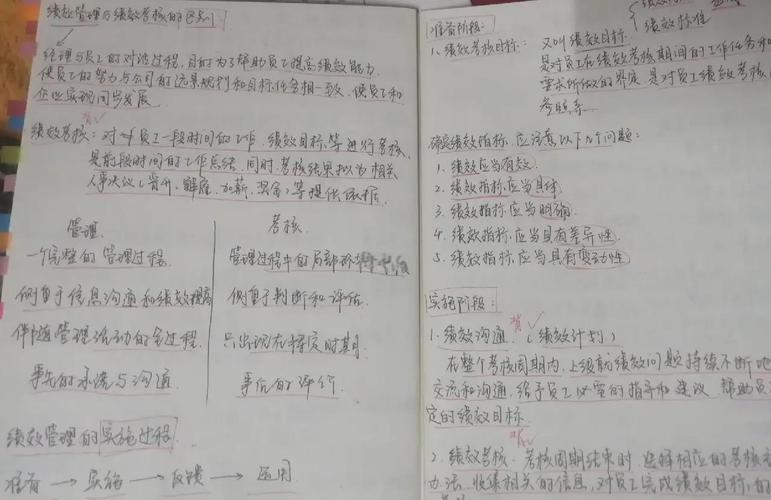 绩效管理与绩效考核的区别
经理与员工的对话过程,目的为了帮助员工提高绩效能力,
使员工的努力与公司的远景规划和目标任务相一致,使员工和
企业实现同步发展
背
绩效考核:对于员工一段时间的工作、绩效目标等进行考核,
是前段时间的工作总结,同时,考核结果拟为相关
人事决议(晋升、解雇、加薪、奖金)等提供依据
管理
一个完整的管理过程
侧重于信息沟通和绩效提高
伴随管理活动的全过程
事先的承诺与沟通
考核
管理过程中的局部环
侧重于判断和评估
只出现在特定时期
事后的评价
绩效管理的实施过程
准备→实施→反馈→运用
绩效标准
准备阶段:
1、绩效考核目标: 又叫绩效目标
是对员工在绩效考核期间的工作任务和
要求所做的界定,是对员工绩效考核
参照系
确定绩效指标,应注意以下几个问题:
1. 绩效应当有效
2. 绩效指标应当具体
3. 绩效指标应当明确
4. 绩效指标应当具有差异性
5. 绩效指标应当具有变动性
实施阶段:
背
1. 绩效沟通 (绩效计划)
在整个考核周期内,上级就绩效问题持续不断地
交流和沟通,给予员工必要的指导和建议,帮助员
定的绩效目标
2、绩效考核:考核周期结束时,选择相应的考核
办法,收集相关的信息,对员工完成绩效目标的